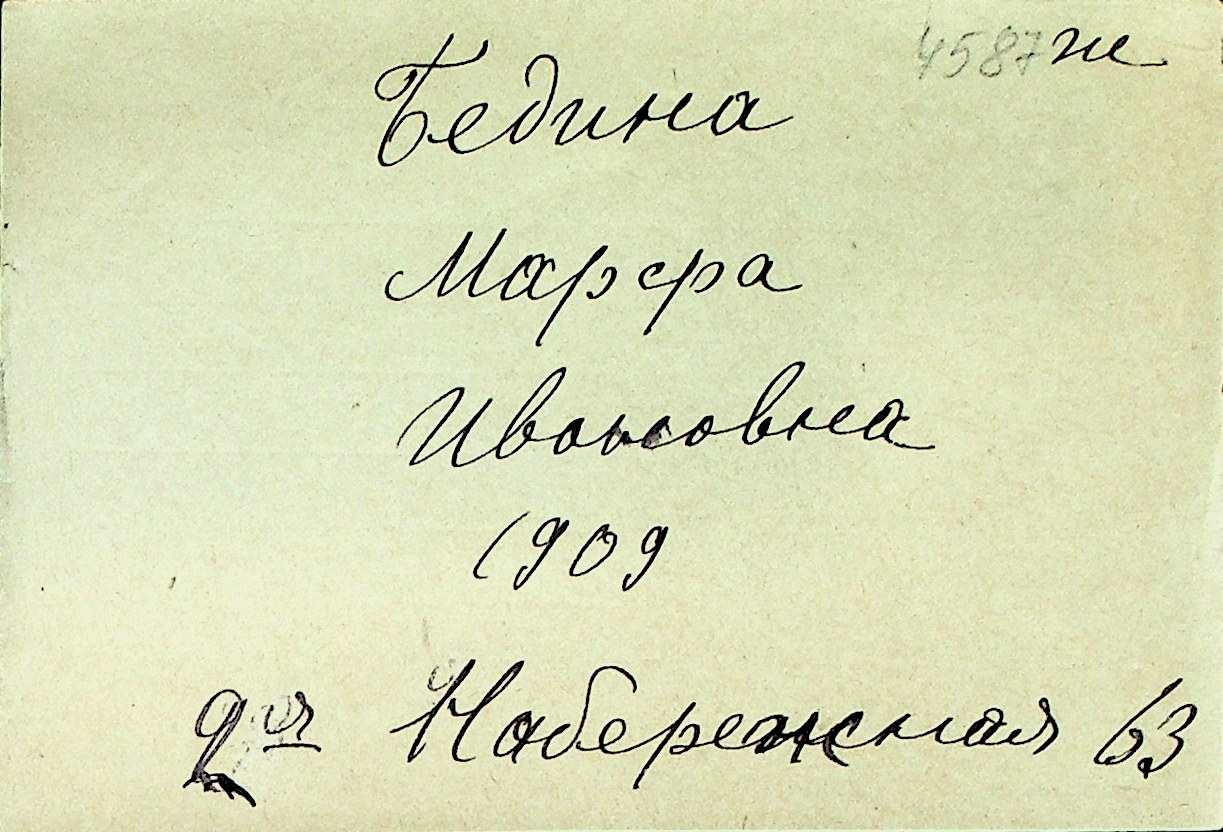 4587 ж
Бедина
Марфа
Ивановна
1909
2ая Набережная 63